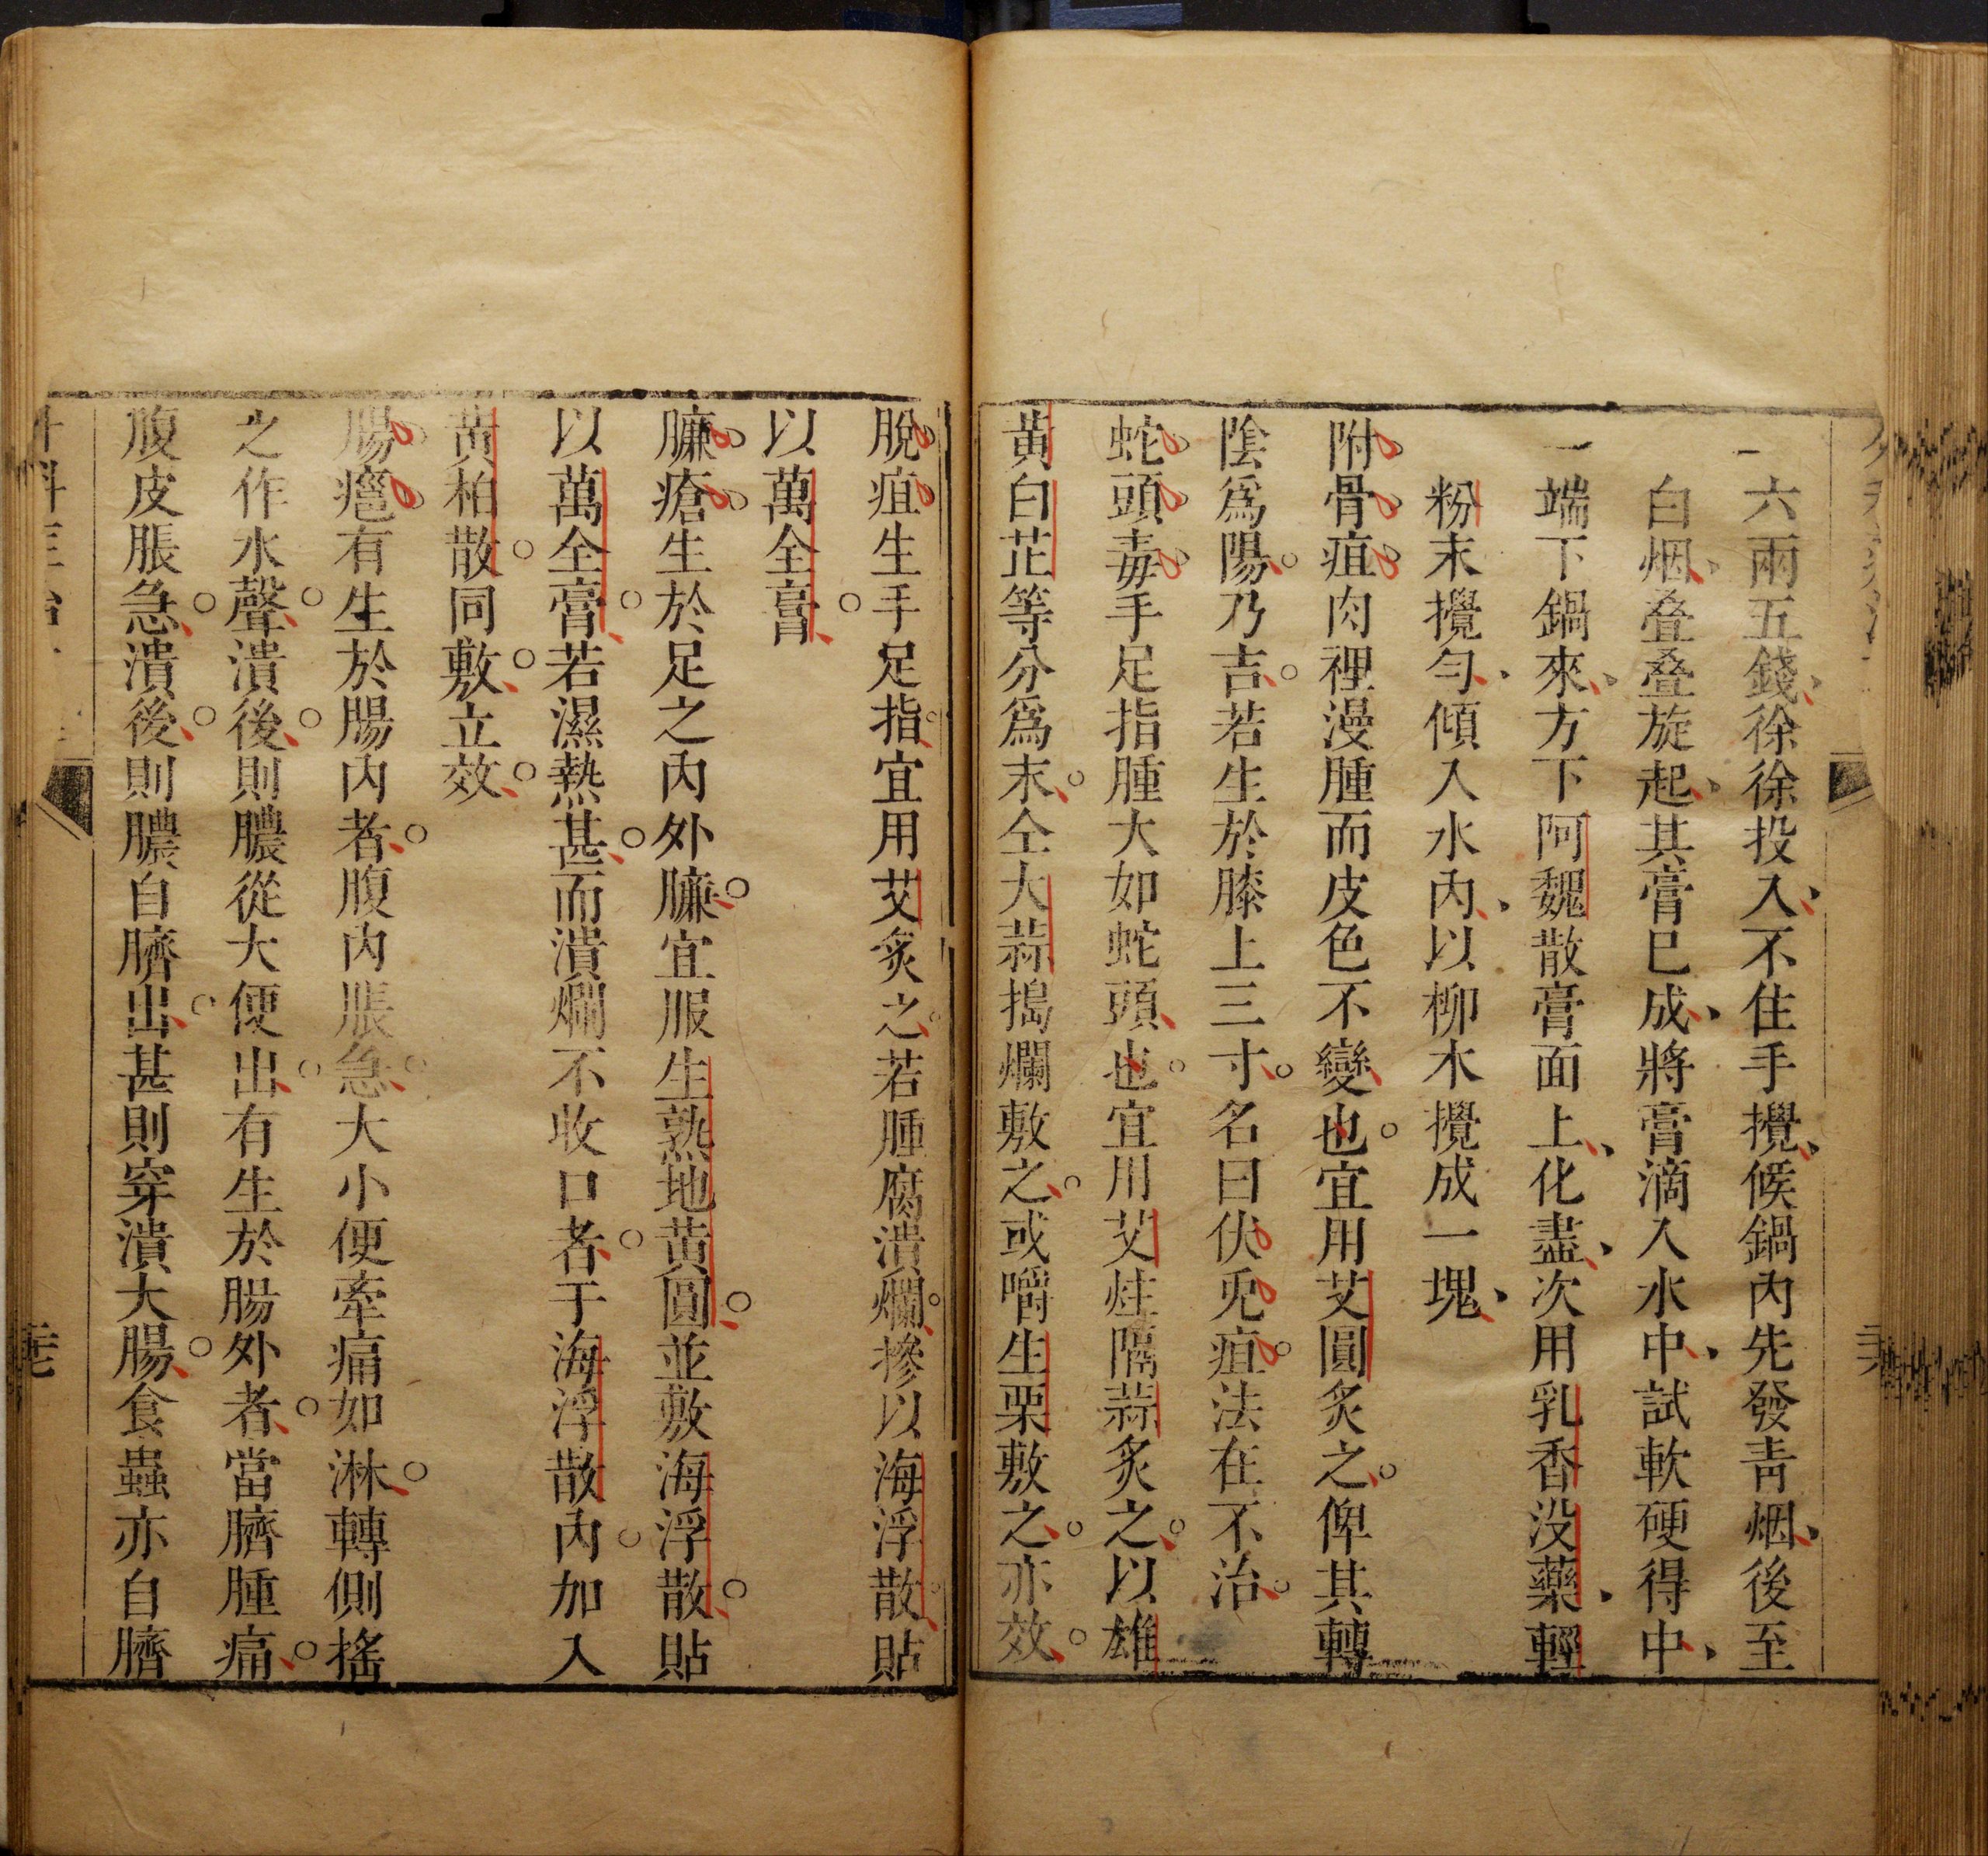 一六兩五錢徐徐投入不住手攪候鍋內先發青烟後至
白烟叠叠旋起其膏已成將膏滴入水中試軟硬得中
一端下鍋來方下阿魏散膏面上化盡次用乳香没藥輕
粉末攪勻傾入水內以柳木攪成一塊
附骨疽肉裡漫腫而皮色不變也宜用艾圓炙之俾其轉
陰爲陽乃吉若生於膝上三寸名曰伏兎疽法在不治
蛇頭毒手足指腫大如蛇頭也宜用艾炷隔蒜炙之以雄
黃白芷等分爲末仝大蒜搗爛敷之或嚼生栗敷之亦效
脫疽生手足指宜用艾炙之若腫腐潰爛摻以海浮散貼
以萬全膏
臁瘡生於足之內外臁宜服生熟地黃圓並敷海浮散貼
以萬全膏若濕熱甚而潰爛不收口者于海浮散內加入
黃柏散同敷立效
腸癰有生於腸內者腹內脹急大小便牽痛如淋轉側搖
之作水聲潰後則膿從大便出有生於腸外者當臍腫痛
腹皮脹急潰後則膿自臍出甚則穿潰大腸食蟲亦自臍